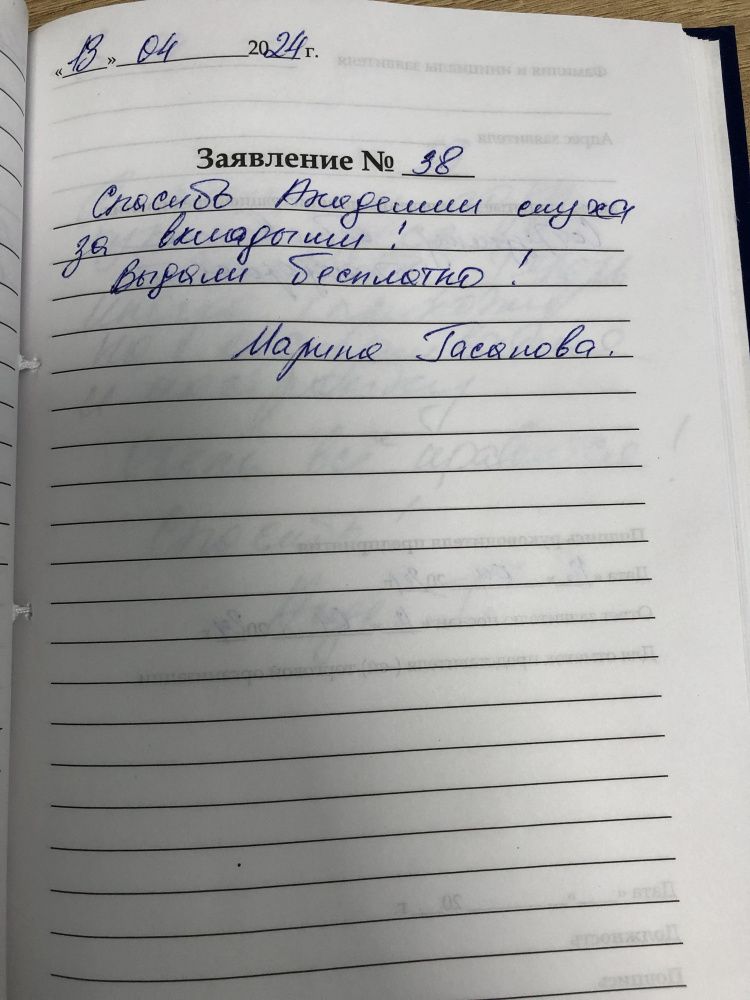 «13» 04 2024 г.
Заявление № 38
Спасибо Академии слуха
за вкладыши!
Выдали бесплатно!
Марина Гасанова.